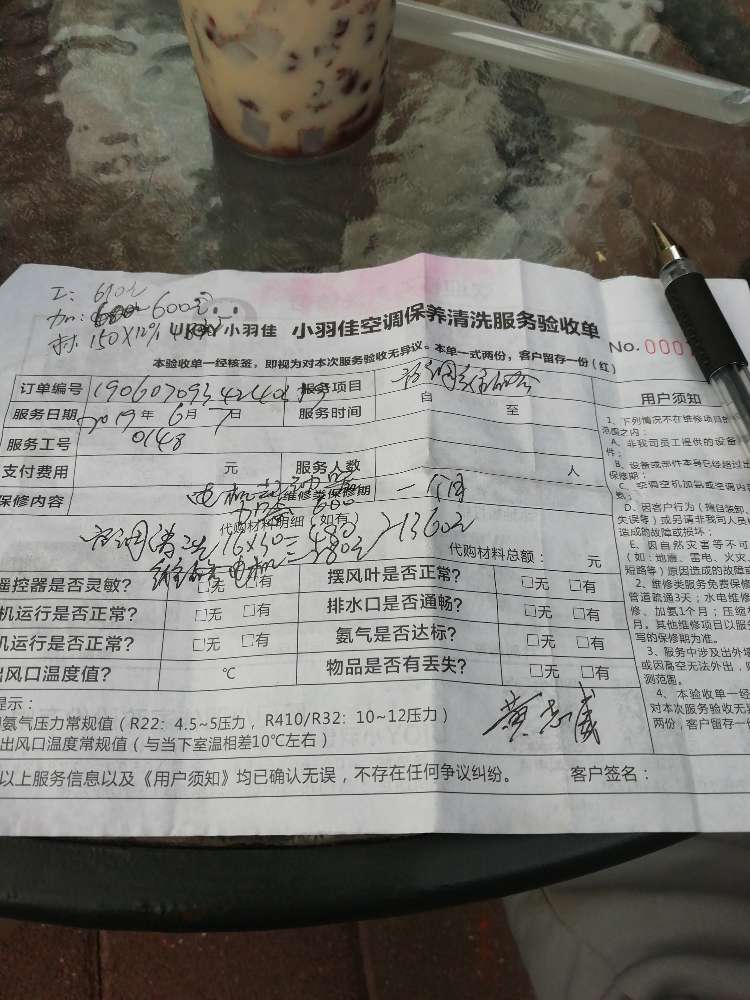 600元
150X12%
UKJOY小羽佳 小羽佳空调保养清洗服务验收单
No. 000
本验收单一经核签，即视为对本次服务验收无异议。本单一式两份，客户留存一份（红）
订单编号 服务项目
服务日期 2019年 6月 7日 服务时间 自 至
服务工号 0148
支付费用 元 服务人数 人
保修内容 维修类保修期 一个月
代购材料明细（如有
空调清洗16X30=480
1360元
维修电机=280元
代购材料总额： 元
遥控器是否灵敏？ □无 □有 摆风叶是否正常？ □无 □有
机运行是否正常？ □无 □有 排水口是否通畅？ □无 □有
机运行是否正常？ □无 □有 氨气是否达标？ □无 □有
出风口温度值？ ℃ 物品是否有丢失？ □无 □有
提示：
氨气压力常规值（R22：4.5~5压力，R410/R32：10~12压力）
出风口温度常规值（与当下室温相差10℃左右）
以上服务信息以及《用户须知》均已确认无误，不存在任何争议纠纷。 客户签名：
用户须知
1、下列情况不在维修项目的
范围之内：
A、非我司员工提供的设备
件；
B、设备或部件本身已经超过出
保修期；
C、空调空机频繁或空调内
数；
D、因客户行为（擅自装卸、
失误等）或另请非我司人员
造成的故障或损坏；
E、因自然灾害等不可
（如:地震、雷电、火灾、
短路等）原因造成的故障或
2、维修类服务免费保修
管道疏通3天；水电维修
修、加氨1个月；压缩
月。其他维修项目以服
写的保修期为准。
3、服务中涉及出外墙
或因高空无法外出，则
测范围。
4、本验收单一经
对本次服务验收无
两份，客户留存一份